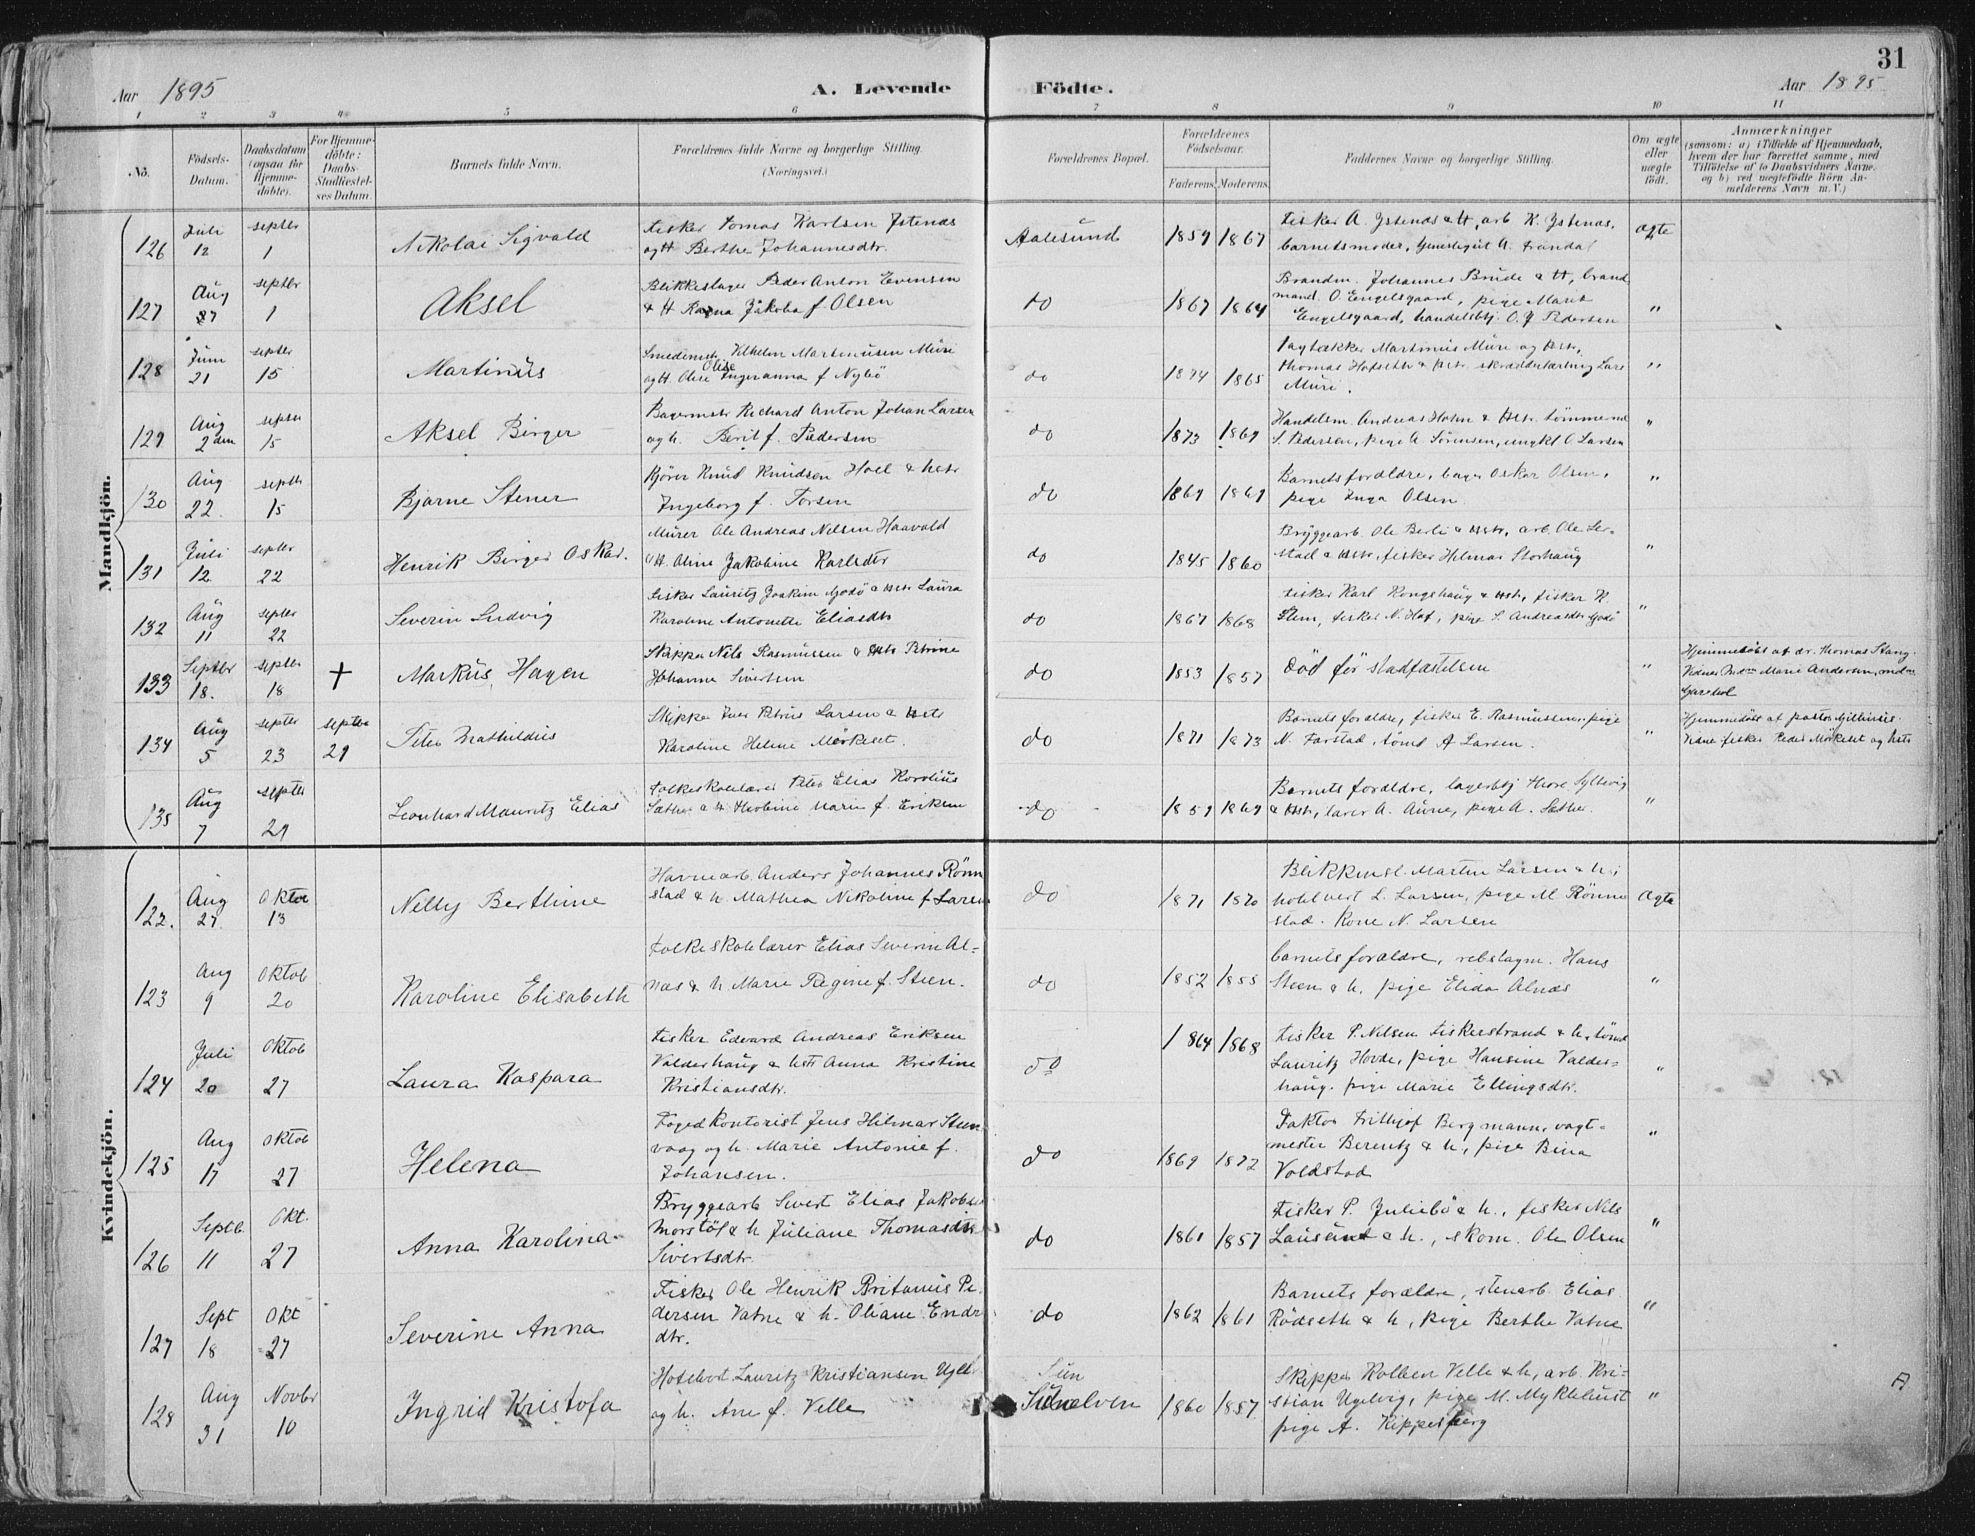 31
Aar 1895 A. Levende Födte. Aar 1895
1 2 3 4 5 6 7 8 9 10 11
No. Födsels-Datum. Daabsdatum (ogsaa for Hjemme-döbte). For Hjemme-döbte: Daabs-Stadfæstel-ses Datum. Barnets fulde Navn. Forældrenes fulde Navne og borgerlige Stilling. (Næringsvei.) Forældrenes Bopæl. Forældrenes Födselsaar. Faderens. Moderens. Faddernes Navne og borgerlige Stilling. Om ægte eller uægte födt. Anmærkninger (saasom: a) i Tilfælde af Hjemmedaab, hvem der har forrettet samme, med Tilföielse af to Daabsvidners Navne, og b) ved uægtefödte Börn An-melderens Navn m. V.)
Mandkjön.
126 Juli 12 septbr 1 Nikolai Sigvald fisker Tomas Karlsen Ystenæs
og H Berthe Johannesdtr. Aalesund 1859 1867 fisker A. Ystenæs & H, arb K. Ystenæs,
barnets moder, A. Ægte
127 Aug 27 septbr 1 Aksel Blikkeslager Peder Anton Evensen
& H Ragna Jakoba f Olsen do 1867 1864 Brandm. Johannes Brude & H, brand
mand. O. Engelsgaard, pige Marit
Engelsgaard, handelsbtj. O. J Pedersen "
128 Juni 21 septbr 15 Martinus Smedemstr Vilhelm Martinusen Muri
og H. Olise Ingeranna f Nybö do 1874 1865 Tagtækker Martinus Muri og Hstr,
Thomas Hofseth & Hstr. skrædderlærling Lars
Muri. "
129 Aug 2den septbr 15 Aksel Birger Bagermstr Richard Anton Johan Larsen
og h. Berit f. Pedersen do 1873 1869 Handelsm. Andreas Holm & Hstr. tömmermd
S. Pedersen, pige A Sörensen, ungkl O. Larsen "
130 Aug 22. septbr 15 Bjarne Stener Kjörer Knud Knudsen Hoel & hstr
Ingeborg f. Torsen do 1869 1869 Barnets forældre, bager Oskar Olsen,
pige Inga Olsen "
131 Juli 12. septbr 22 Henrik Birger Oskar. Murer Ole Andreas Nilsen Haavold
& H. Oline Jakobine Karlsdtr do 1845 1860 Bryggearb Ole Berli & Hstr, arb Ole Ler-
stad & Hstr, fisker Hilmar Storhaug "
132 Aug 11 septbr 22 Severin Ludvig fisker Lauritz Joakim Godö & Hstr Laura
Karoline Antonette Eliasdtr do 1867 1868 fisker Karl Kongshaug & Hstr, fisker K.
Slem, fisker N. Hof, pige S. Andreasdtr Godö "
133 Septbr 18. septbr 18 + Markus Hagen Skipper Nils Rasmussen & Hstr Petrine
Johanne Sivertsen do 1853 1857 död för stadfæstelsen " Hjemmedöbt af dr. Thomas Stang.
Vidner Marie Andersen,
134 Aug 5 septbr 23 septbr 29 Peter Mathildius Skipper Iver Petrus Larsen & Hstr
Karoline Helene Mörkeset. do 1871 1873 Barnets forældre, fisker E. Rasmussen, pige
N. Farstad, tömd A Larsen. " Hjemmedöbt af pastor
Vidne fisker Peder Mörkeset og hstr
135 Aug 7 septbr 29 Leonhard Mauritz Elias Folkeskolelærer Peter Elias Karolius
Sæthre & H. Marie f. Eriksen do 1859 1869 Barnets forældre, lagerbtj Thore Syltevig
& Hstr, lærer A. Aune, pige A. Sæthre. "
Kvindekjön.
122. Aug 27 Oktbr 13 Nelly Berthine Havnearb. Anders Johannes Rönn
stad & h. Mathea Nikoline f Larsen do 1871 1870 Blikkensl. Martin Larsen & h,
L. Larsen, pige M Rönne
stad. Kone N. Larsen Ægte
123 Aug 9 Oktob 20 Karoline Elisabeth Folkeskolelærer Elias Severin Al-
næs & h Marie Regine f. Steen. do 1852 1855 barnets forældre, rebslagm. Hans
Steen & h, pige Elida Alnæs "
124 Juli 20 Oktob 27 Laura Kaspara fisker Edvard Andreas Eriksen
Valderhaug & hstr Anna Kristine
Kristiansdtr. do 1864 1868 fisker P. Nilsen Fiskerstrand & h, tömd
Lauritz Hovde, pige Hansine Valder-
haug. pige Marie Ellingsdtr. "
125 Aug 17 Oktob 27 Helena Fogedkontorist Jens Hilmar Steen
vaag og h. Marie Antonie f.
Johansen. do 1869 1872 Faktor Frithjof Bergmann, vagt-
mester Berentz & h, pige Bina
Voldstad "
126 Septb. 11 Okt. 27 Anna Karolina Bryggearb Sivert Elias Jakobsen
Morstöl & h Juliane Thomasine
Sivertsdtr. do 1861 1857 Fisker P. Juliebö & h., fisker Nils
Lausund & h., skom. Ole Olsen "
127 Sept 18 Okt 27 Severine Anna Fisker Ole Henrik Britanus Pe-
dersen Vatne & h. Oliane Endr
dtr. do 1862 1861 Barnets forældre, stenarb. Elias
Rödseth & h, pige Berthe Vatne "
128 Aug 31 Novbr 10 Ingrid Kristofa Hotelvert Lauritz Kristiansen Ugel
og h. Ane f. Velle Sunelven 1860 1857 Skipper Kolben Velle & h, arb. Kri-
stian Ugelvig, pige M. Myklebust
pige A. Kippersberg "